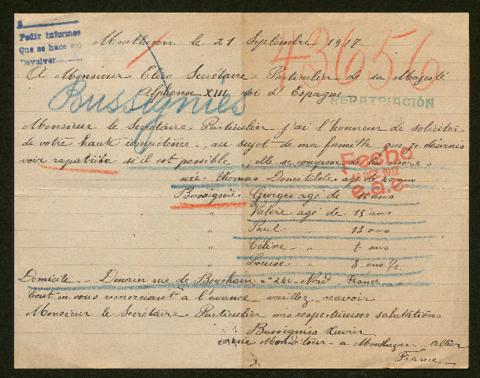 Pedir informes
Que se hace en
Devolver
Montluçon le 21 Septembre 1917
43656
A Monsieur Elico Secrétaire Particulier de sa Majesté
Alphonse XIII roi d'Espagne
Bussignies
REPATRIACIÓN
Monsieur le Secrétaire Particulier j'ai l'honneur de solliciter
de votre haute au sujet de ma famille que je désirais
voir rapatriée si il est possible, elle se compose de la mère
née Thomas Domitilde age de ans
Fecho
1917
Bussignies Georges age de ans
" Valère age de 15 ans
" Paul " 13 ans
" Céline " 7 ans
" Louise " 3 ans ½
Domicile Denain rue de Bouchain n° 242 Nord France
Tout en vous remerciant à l'avance veuillez recevoir
Monsieur le Secrétaire Particulier mes respectueuses salutations
Bussignies Xavier
rue à Montluçon Allier
France